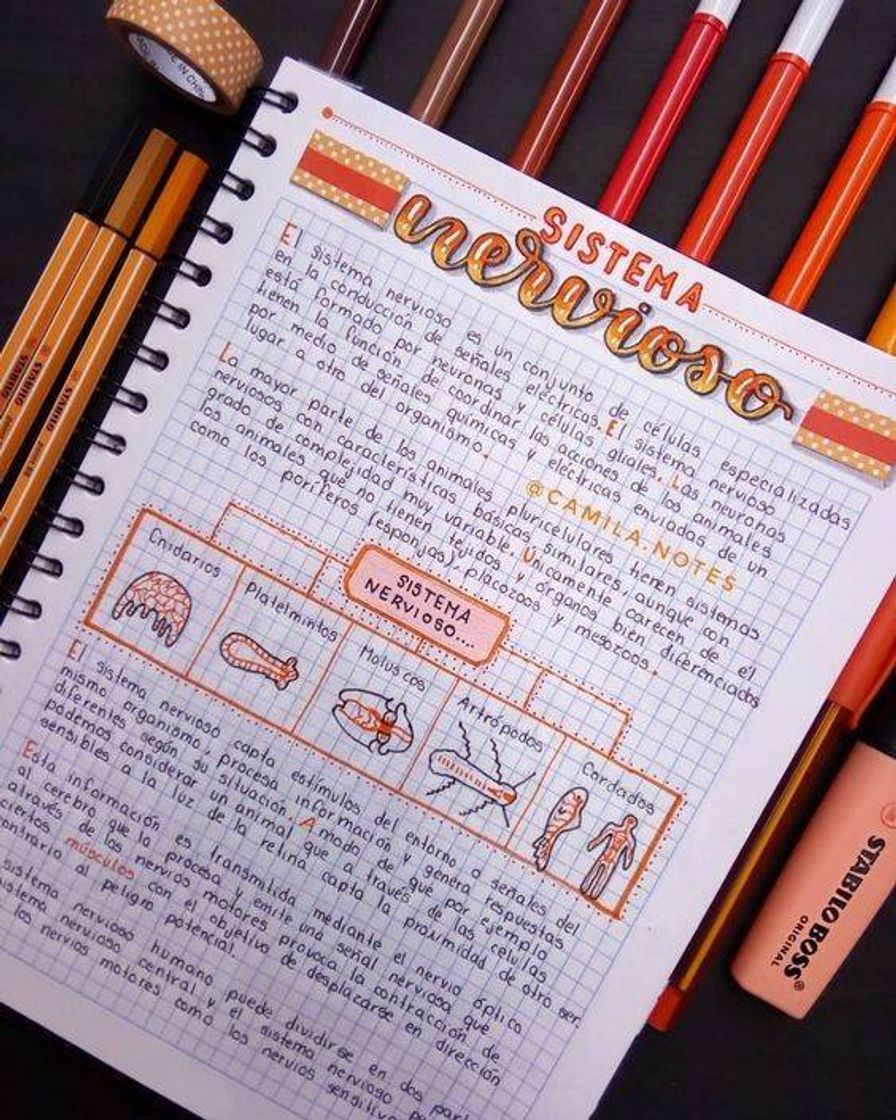 SISTEMA
nervioso
El sistema nervioso es un conjunto de células especializadas
en la conducción de señales eléctricas. El sistema nervioso
está formado por neuronas y células gliales. Las neuronas
tienen la función de coordinar las acciones de los animales
por medio de señales químicas y eléctricas enviadas de un
lugar a otro del organismo.
@CAMILA.NOTES
La mayor parte de los animales pluricelulares tienen sistemas
nerviosos con características básicas similares, aunque con
grado de complejidad muy variable. Únicamente carecen de él
los animales que no tienen tejidos y órganos bien diferenciados
como los poríferos (esponjas), placozoos y mesozoos.
SISTEMA
NERVIOSO...
Cnidarios
Platelmintos
Moluscos
Artrópodos
Cordados
El sistema nervioso capta estímulos del entorno o señales del
mismo organismo, procesa información y genera respuestas
diferentes según su situación. A modo de que por ejemplo
podemos considerar un animal que a través de las células
sensibles a la luz de la retina capta la proximidad de otro ser.
Esta información es transmitida mediante el nervio óptico
al cerebro que la procesa y emite una señal nerviosa que
através de los nervios motores provoca la contracción de
ciertos músculos con el objetivo de desplazarse en dirección
contraria al peligro potencial.
sistema nervioso humano puede dividirse en dos
sistema nervioso central y el sistema nervioso
los nervios motores como los nervios
STABILO
STABILO
STABILO
STABILO BOSS
ORIGINAL